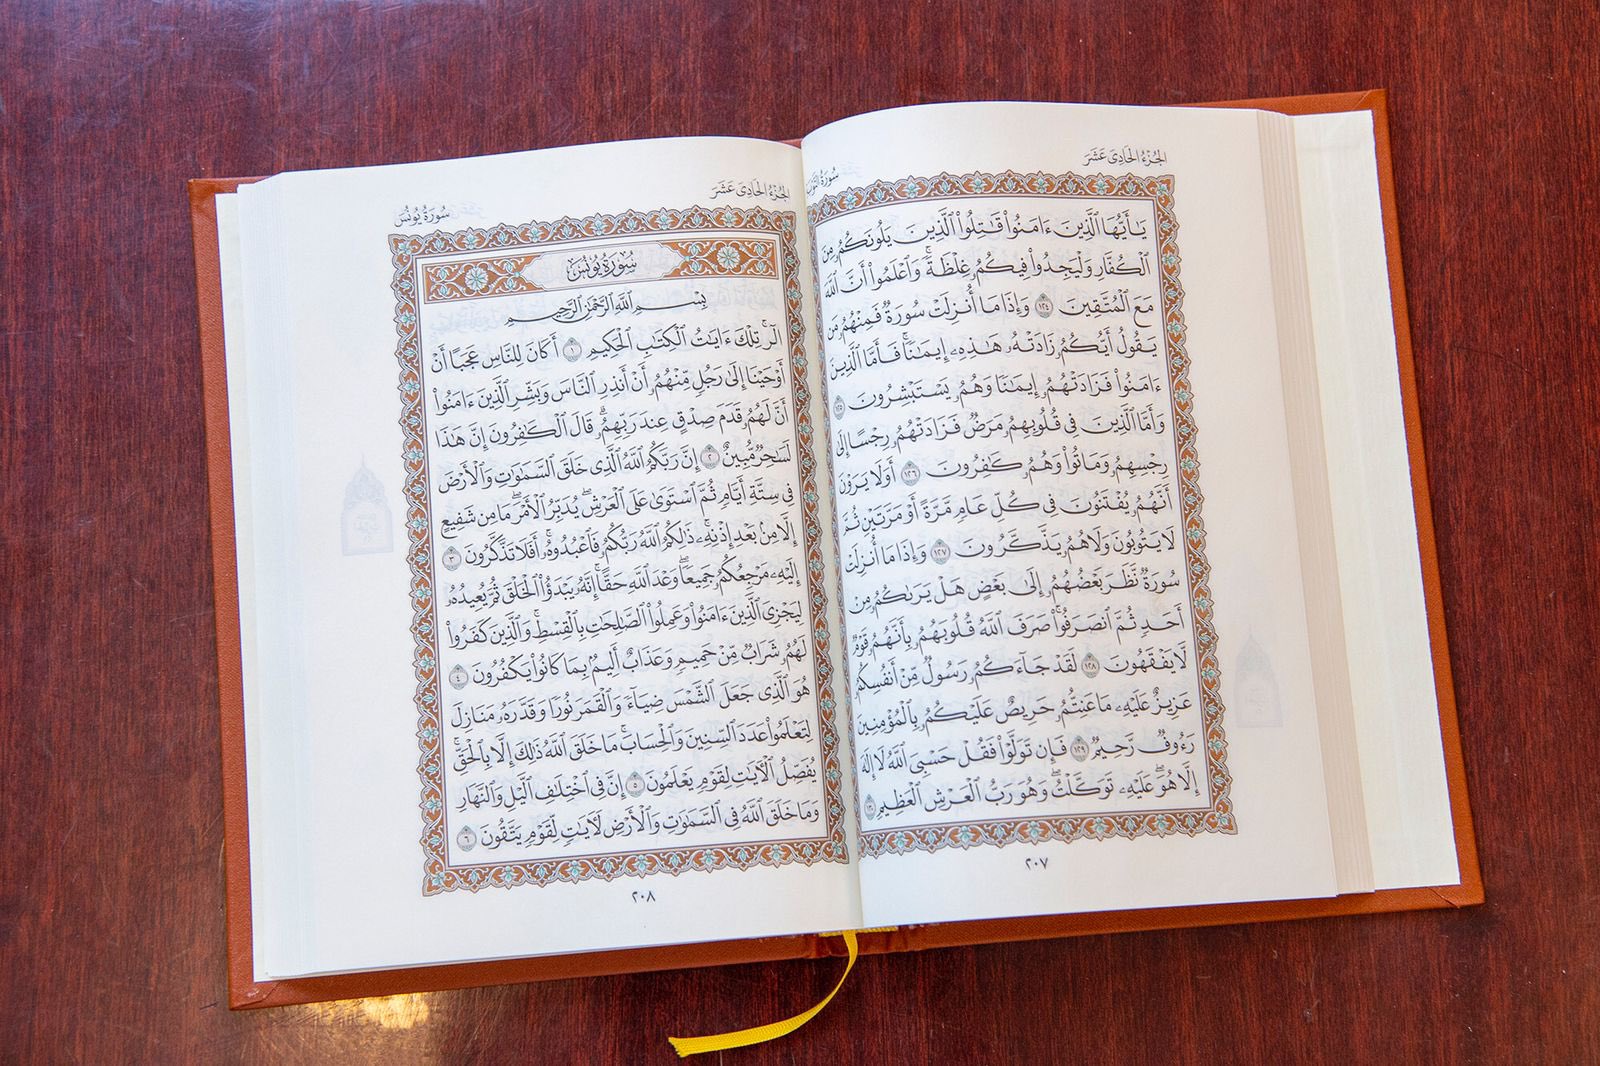 الجُزْءُ الحَادِى عَشَرَ
سُورَةُ التَّوۡبَةِ
يَٰٓأَيُّهَا ٱلَّذِينَ ءَامَنُواْ قَٰتِلُواْ ٱلَّذِينَ يَلُونَكُمُۥ مِنَ
ٱلۡكُفَّارِ وَلۡيَجِدُواْ فِيكُمُۥ غِلۡظَةٗۚ وَٱعۡلَمُواْ أَنَّ ٱللَّهَ
مَعَ ٱلۡمُتَّقِينَ ١٢٤ وَإِذَا مَا أُنزِلَتۡ سُورَةٞ فَمِنۡهُمُۥ مَن
يَقُولُ أَيُّكُمُۥ زَادَتۡهُۥ هَٰذِهِۦ إِيمَٰنٗاۚ فَأَمَّا ٱلَّذِينَ
ءَامَنُواْ فَزَادَتۡهُمُۥ إِيمَٰنٗا وَهُمُۥ يَسۡتَبۡشِرُونَ ١٢٥
وَأَمَّا ٱلَّذِينَ فِى قُلُوبِهِمُۥ مَرَضٞ فَزَادَتۡهُمُۥ رِجۡسًا إِلَىٰ
رِجۡسِهِمُۥ وَمَاتُواْ وَهُمُۥ كَٰفِرُونَ ١٢٦ أَوَلَا يَرَوۡنَ
أَنَّهُمُۥ يُفۡتَنُونَ فِى كُلِّ عَامٖ مَّرَّةً أَوۡ مَرَّتَيۡنِ ثُمَّ
لَا يَتُوبُونَ وَلَا هُمُۥ يَذَّكَّرُونَ ١٢٧ وَإِذَا مَا أُنزِلَتۡ
سُورَةٞ نَّظَرَ بَعۡضُهُمُۥ إِلَىٰ بَعۡضٍ هَلۡ يَرَىٰكُمُۥ مِنۡ
أَحَدٖ ثُمَّ ٱنصَرَفُواْۚ صَرَفَ ٱللَّهُ قُلُوبَهُمُۥ بِأَنَّهُمُۥ قَوۡمٞ
لَّا يَفۡقَهُونَ ١٢٨ لَقَدۡ جَآءَكُمُۥ رَسُولٞ مِّنۡ أَنفُسِكُمُۥ
عَزِيزٌ عَلَيۡهِۦ مَا عَنِتُّمُۥ حَرِيصٌ عَلَيۡكُمُۥ بِٱلۡمُؤۡمِنِينَ
رَءُوفٞ رَّحِيمٞ ١٢٩ فَإِن تَوَلَّوۡاْ فَقُلۡ حَسۡبِىَ ٱللَّهُ لَا إِلَٰهَ
إِلَّا هُوَۖ عَلَيۡهِۦ تَوَكَّلۡتُۖ وَهُوَ رَبُّ ٱلۡعَرۡشِ ٱلۡعَظِيمِ ١٣٠
٢٠٧
الجُزْءُ الحَادِى عَشَرَ
سُورَةُ يُونُسَ
سُورَةُ يُونُسَ
بِسۡمِ ٱللَّهِ ٱلرَّحۡمَٰنِ ٱلرَّحِيمِ
الٓرۚ تِلۡكَ ءَايَٰتُ ٱلۡكِتَٰبِ ٱلۡحَكِيمِ ١ أَكَانَ لِلنَّاسِ عَجَبًا أَنۡ
أَوۡحَيۡنَا إِلَىٰ رَجُلٖ مِّنۡهُمُۥ أَنۡ أَنذِرِ ٱلنَّاسَ وَبَشِّرِ ٱلَّذِينَ ءَامَنُواْ
أَنَّ لَهُمُۥ قَدَمَ صِدۡقٍ عِندَ رَبِّهِمُۥۗ قَالَ ٱلۡكَٰفِرُونَ إِنَّ هَٰذَا
لَسَٰحِرٞ مُّبِينٌ ٢ إِنَّ رَبَّكُمُ ٱللَّهُ ٱلَّذِى خَلَقَ ٱلسَّمَٰوَٰتِ وَٱلۡأَرۡضَ
فِى سِتَّةِ أَيَّامٖ ثُمَّ ٱسۡتَوَىٰ عَلَى ٱلۡعَرۡشِۖ يُدَبِّرُ ٱلۡأَمۡرَۖ مَا مِن شَفِيعٍ
إِلَّا مِنۢ بَعۡدِ إِذۡنِهِۦۚ ذَٰلِكُمُ ٱللَّهُ رَبُّكُمُۥ فَٱعۡبُدُوهُۥۚ أَفَلَا تَذَّكَّرُونَ ٣
إِلَيۡهِۦ مَرۡجِعُكُمُۥ جَمِيعٗاۖ وَعۡدَ ٱللَّهِ حَقًّاۚ إِنَّهُۥ يَبۡدَؤُاْ ٱلۡخَلۡقَ ثُمَّ يُعِيدُهُۥ
لِيَجۡزِىَ ٱلَّذِينَ ءَامَنُواْ وَعَمِلُواْ ٱلصَّٰلِحَٰتِ بِٱلۡقِسۡطِۚ وَٱلَّذِينَ كَفَرُواْ
لَهُمُۥ شَرَابٞ مِّنۡ حَمِيمٖ وَعَذَابٌ أَلِيمُۢ بِمَا كَانُواْ يَكۡفُرُونَ ٤
هُوَ ٱلَّذِى جَعَلَ ٱلشَّمۡسَ ضِيَآءٗ وَٱلۡقَمَرَ نُورٗا وَقَدَّرَهُۥ مَنَازِلَ
لِتَعۡلَمُواْ عَدَدَ ٱلسِّنِينَ وَٱلۡحِسَابَۚ مَا خَلَقَ ٱللَّهُ ذَٰلِكَ إِلَّا بِٱلۡحَقِّۚ
يُفَصِّلُ ٱلۡأٓيَٰتِ لِقَوۡمٖ يَعۡلَمُونَ ٥ إِنَّ فِى ٱخۡتِلَٰفِ ٱلَّيۡلِ وَٱلنَّهَارِ
وَمَا خَلَقَ ٱللَّهُ فِى ٱلسَّمَٰوَٰتِ وَٱلۡأَرۡضِ لَأٓيَٰتٖ لِّقَوۡمٖ يَتَّقُونَ ٦
٢٠٨